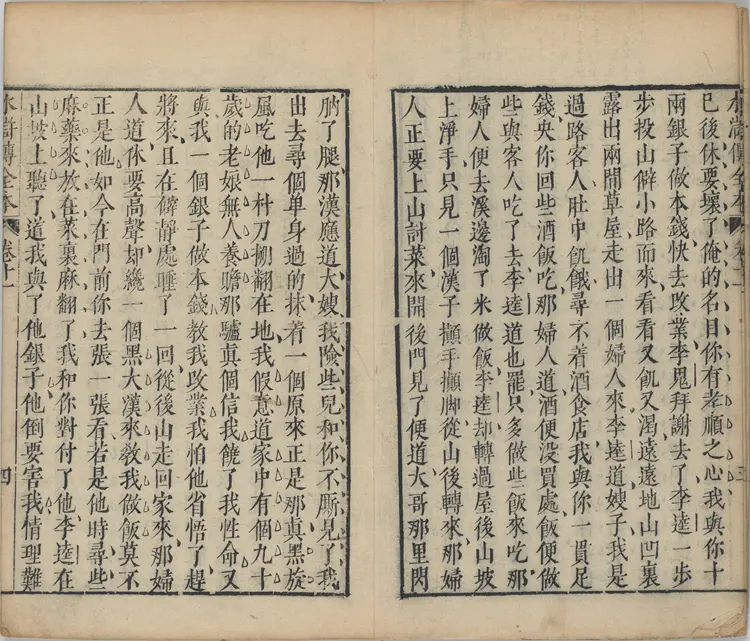 水滸傳全本 卷十一 三
已後休要壞了俺的名目你有孝順之心我與你十
兩銀子做本錢快去改業李鬼拜謝去了李逵一步
步投山僻小路而來看看又飢又渴遠遠地山凹裏
露出兩間草屋走出一個婦人來李逵道嫂子我是
過路客人肚中飢餓尋不着酒食店我與你一貫足
錢央你回些酒飯吃那婦人道酒便没買處飯便做
些與客人吃了去李逵道也罷只多做些飯來吃那
婦人便去溪邊淘了米做飯李逵却轉過屋後山坡
上淨手只見一個漢子攧手攧脚從山後轉來那婦
人正要上山討菜來開後門見了便道大哥那里閃
肭了腿那漢應道大嫂我險些兒和你不厮見了我
出去尋個单身過的抹着一個原來正是那真黑旋
風吃他一朴刀搠翻在地我假意道家中有個九十
歲的老娘無人養贍那驢真個信我饒了我性命又
與我一個銀子做本錢教我改業我怕他省悟了趕
將來且在僻靜處睡了一回從後山走回家來那婦
人道休要高聲却纔一個黑大漢來教我做飯莫不
正是他如今在門前你去張一張看若是他時尋些
麻藥來放在菜裏麻翻了我和你對付了他李逵在
山坡上聽了道我與了他銀子他倒要害我情理難
水滸傳全本 卷十一 四